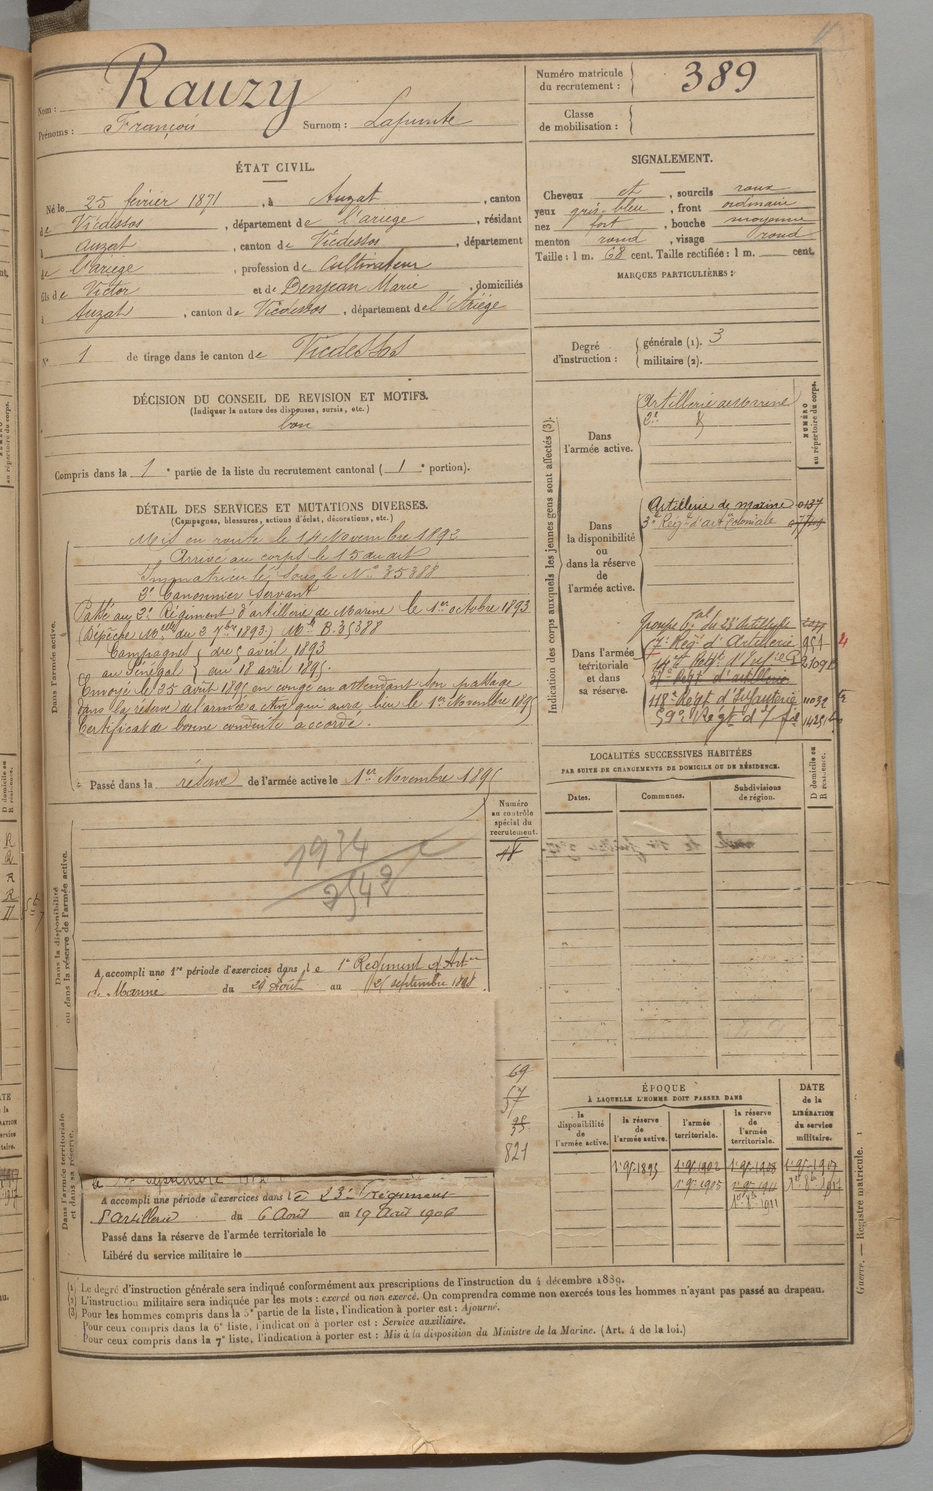 Nom : Rauzy
Prénoms : François Surnom :
Numéro matricule du recrutement : 389
Classe de mobilisation :
ÉTAT CIVIL.
Né le 25 février 1871, à Auzat, canton
de Vicdessos, département de l'ariège, résidant
à auzat, canton de Vicdessos, département
de l'ariège, profession de Cultivateur
fils de Victor et de Denjean Marie, domiciliés
à Auzat, canton de Vicdessos, département de l'Ariège
N° 1 de tirage dans le canton de Vicdessos
SIGNALEMENT.
Cheveux et, sourcils roux
yeux gris-bleu, front ordinaire
nez fort, bouche moyenne
menton rond, visage rond
Taille : 1 m. 68 cent. Taille rectifiée : 1 m. cent.
MARQUES PARTICULIÈRES :
Degré d'instruction : générale (1). 3
militaire (2).
DÉCISION DU CONSEIL DE REVISION ET MOTIFS.
(Indiquer la nature des dispenses, sursis, etc.)
bon
Compris dans la 1e partie de la liste du recrutement cantonal (1e portion).
DÉTAIL DES SERVICES ET MUTATIONS DIVERSES.
(Campagnes, blessures, actions d'éclat, décorations, etc.)
Dans l'armée active.
Mis en route le 14 Novembre 1892
Arrivé au corps le 15 du dit
Immatriculé sous le N° 35388
2e Canonnier Servant
Passé au 2e Régiment d'artillerie de Marine le 1er octobre 1893
(Dépêche Mlle du 3 7bre 1893) Mle B.35388
Campagnes { du 5 avril 1893
au Sénégal { au 18 avril 1895.
Envoyé le 25 août 1895 en congé en attendant son passage
dans la réserve de l'armée active qui aura lieu le 1er Novembre 1895
Certificat de bonne conduite accordé.
Passé dans la réserve de l'armée active le 1er Novembre 1895
Indication des corps auxquels les jeunes gens sont affectés (3).
NUMÉRO au répertoire du corps.
Dans l'armée active.
Artillerie de Marine
2e
Dans la disponibilité ou dans la réserve de l'armée active.
Artillerie de marine 0137
3e Rég. d'art. Coloniale
Dans l'armée territoriale et dans sa réserve.
Groupe tal du 23e Artillerie
7e Régt d'Artillerie 951
118e Régt d'Infanterie 11032
59e Régt d'Inf.
LOCALITÉS SUCCESSIVES HABITÉES
PAR SUITE DE CHANGEMENTS DE DOMICILE OU DE RÉSIDENCE.
Dates. Communes. Subdivisions de région. D domicile ou R résidence.
Dans la disponibilité ou dans la réserve de l'armée active.
Numéro au contrôle spécial du recrutement.
48
1934
2542
A accompli une 1re période d'exercices dans le 1er Régiment d'Art.ie
de Marine du 29 Août au 25 septembre 1898
69
57
821
Dans l'armée territoriale et dans sa réserve.
A accompli une période d'exercices dans le 23e Régiment
d'artillerie du 6 Août au 19 Août 1906
Passé dans la réserve de l'armée territoriale le
Libéré du service militaire le
ÉPOQUE
À LAQUELLE L'HOMME DOIT PASSER DANS
la disponibilité de l'armée active. la réserve de l'armée active. l'armée territoriale. la réserve de l'armée territoriale.
DATE de la LIBÉRATION du service militaire.
1er 9bre 1895 1er 9bre 1902 1er 9bre 1908 1er 9bre 1917
1er 9bre 1905 1er 9bre 1911 1er 8bre 1917
1er 8bre 1911
(1) Le degré d'instruction générale sera indiqué conformément aux prescriptions de l'instruction du 4 décembre 1889.
(2) L'instruction militaire sera indiquée par les mots : exercé ou non exercé. On comprendra comme non exercés tous les hommes n'ayant pas passé au drapeau.
(3) Pour les hommes compris dans la 5e partie de la liste, l'indication à porter est : Ajourné.
Pour ceux compris dans la 6e liste, l'indication à porter est : Service auxiliaire.
Pour ceux compris dans la 7e liste, l'indication à porter est : Mis à la disposition du Ministre de la Marine. (Art. 4 de la loi.)
Guerre. — Registre matricule. 1